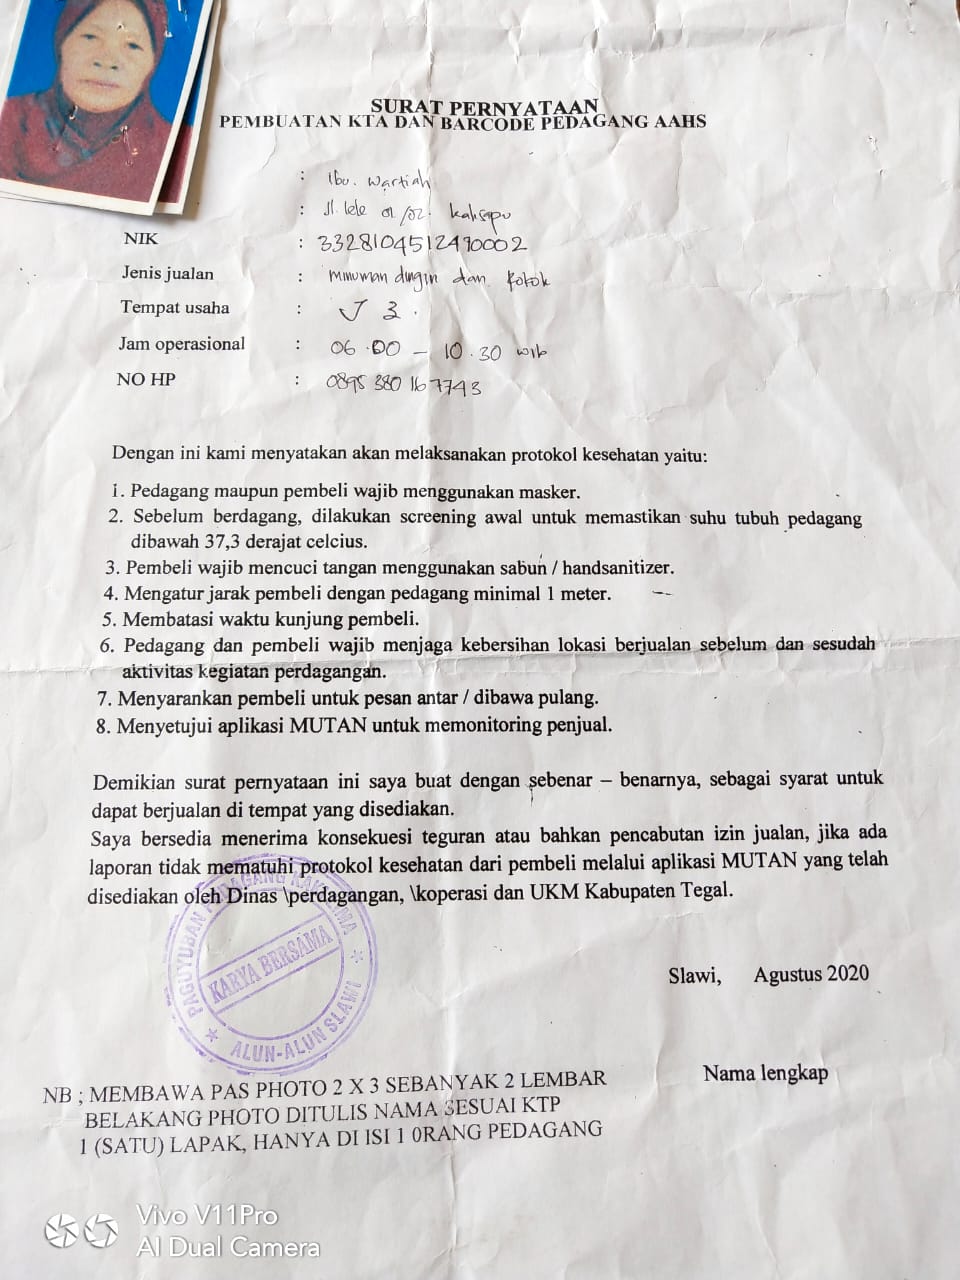 SURAT PERNYATAAN
PEMBUATAN KTA DAN BARCODE PEDAGANG AAHS
: Ibu. Wartiah
: Jl. lele 01/02. Kalisapu
NIK : 3328104512490002
Jenis jualan : Minuman dingin dan Rokok
Tempat usaha : J 3.
Jam operasional : 06.00 – 10.30 wib
NO HP : 0895 380 167743
Dengan ini kami menyatakan akan melaksanakan protokol kesehatan yaitu:
1. Pedagang maupun pembeli wajib menggunakan masker.
2. Sebelum berdagang, dilakukan screening awal untuk memastikan suhu tubuh pedagang
dibawah 37,3 derajat celcius.
3. Pembeli wajib mencuci tangan menggunakan sabun / handsanitizer.
4. Mengatur jarak pembeli dengan pedagang minimal 1 meter.
5. Membatasi waktu kunjung pembeli.
6. Pedagang dan pembeli wajib menjaga kebersihan lokasi berjualan sebelum dan sesudah
aktivitas kegiatan perdagangan.
7. Menyarankan pembeli untuk pesan antar / dibawa pulang.
8. Menyetujui aplikasi MUTAN untuk memonitoring penjual.
Demikian surat pernyataan ini saya buat dengan sebenar – benarnya, sebagai syarat untuk
dapat berjualan di tempat yang disediakan.
Saya bersedia menerima konsekuesi teguran atau bahkan pencabutan izin jualan, jika ada
laporan tidak mematuhi protokol kesehatan dari pembeli melalui aplikasi MUTAN yang telah
disediakan oleh Dinas \perdagangan, \koperasi dan UKM Kabupaten Tegal.
PAGUYUBAN PEDAGANG KAKI LIMA
KARYA BERSAMA
ALUN-ALUN SLAWI
Slawi, Agustus 2020
Nama lengkap
NB ; MEMBAWA PAS PHOTO 2 X 3 SEBANYAK 2 LEMBAR
BELAKANG PHOTO DITULIS NAMA SESUAI KTP
1 (SATU) LAPAK, HANYA DI ISI 1 0RANG PEDAGANG
Vivo V11Pro
AI Dual Camera